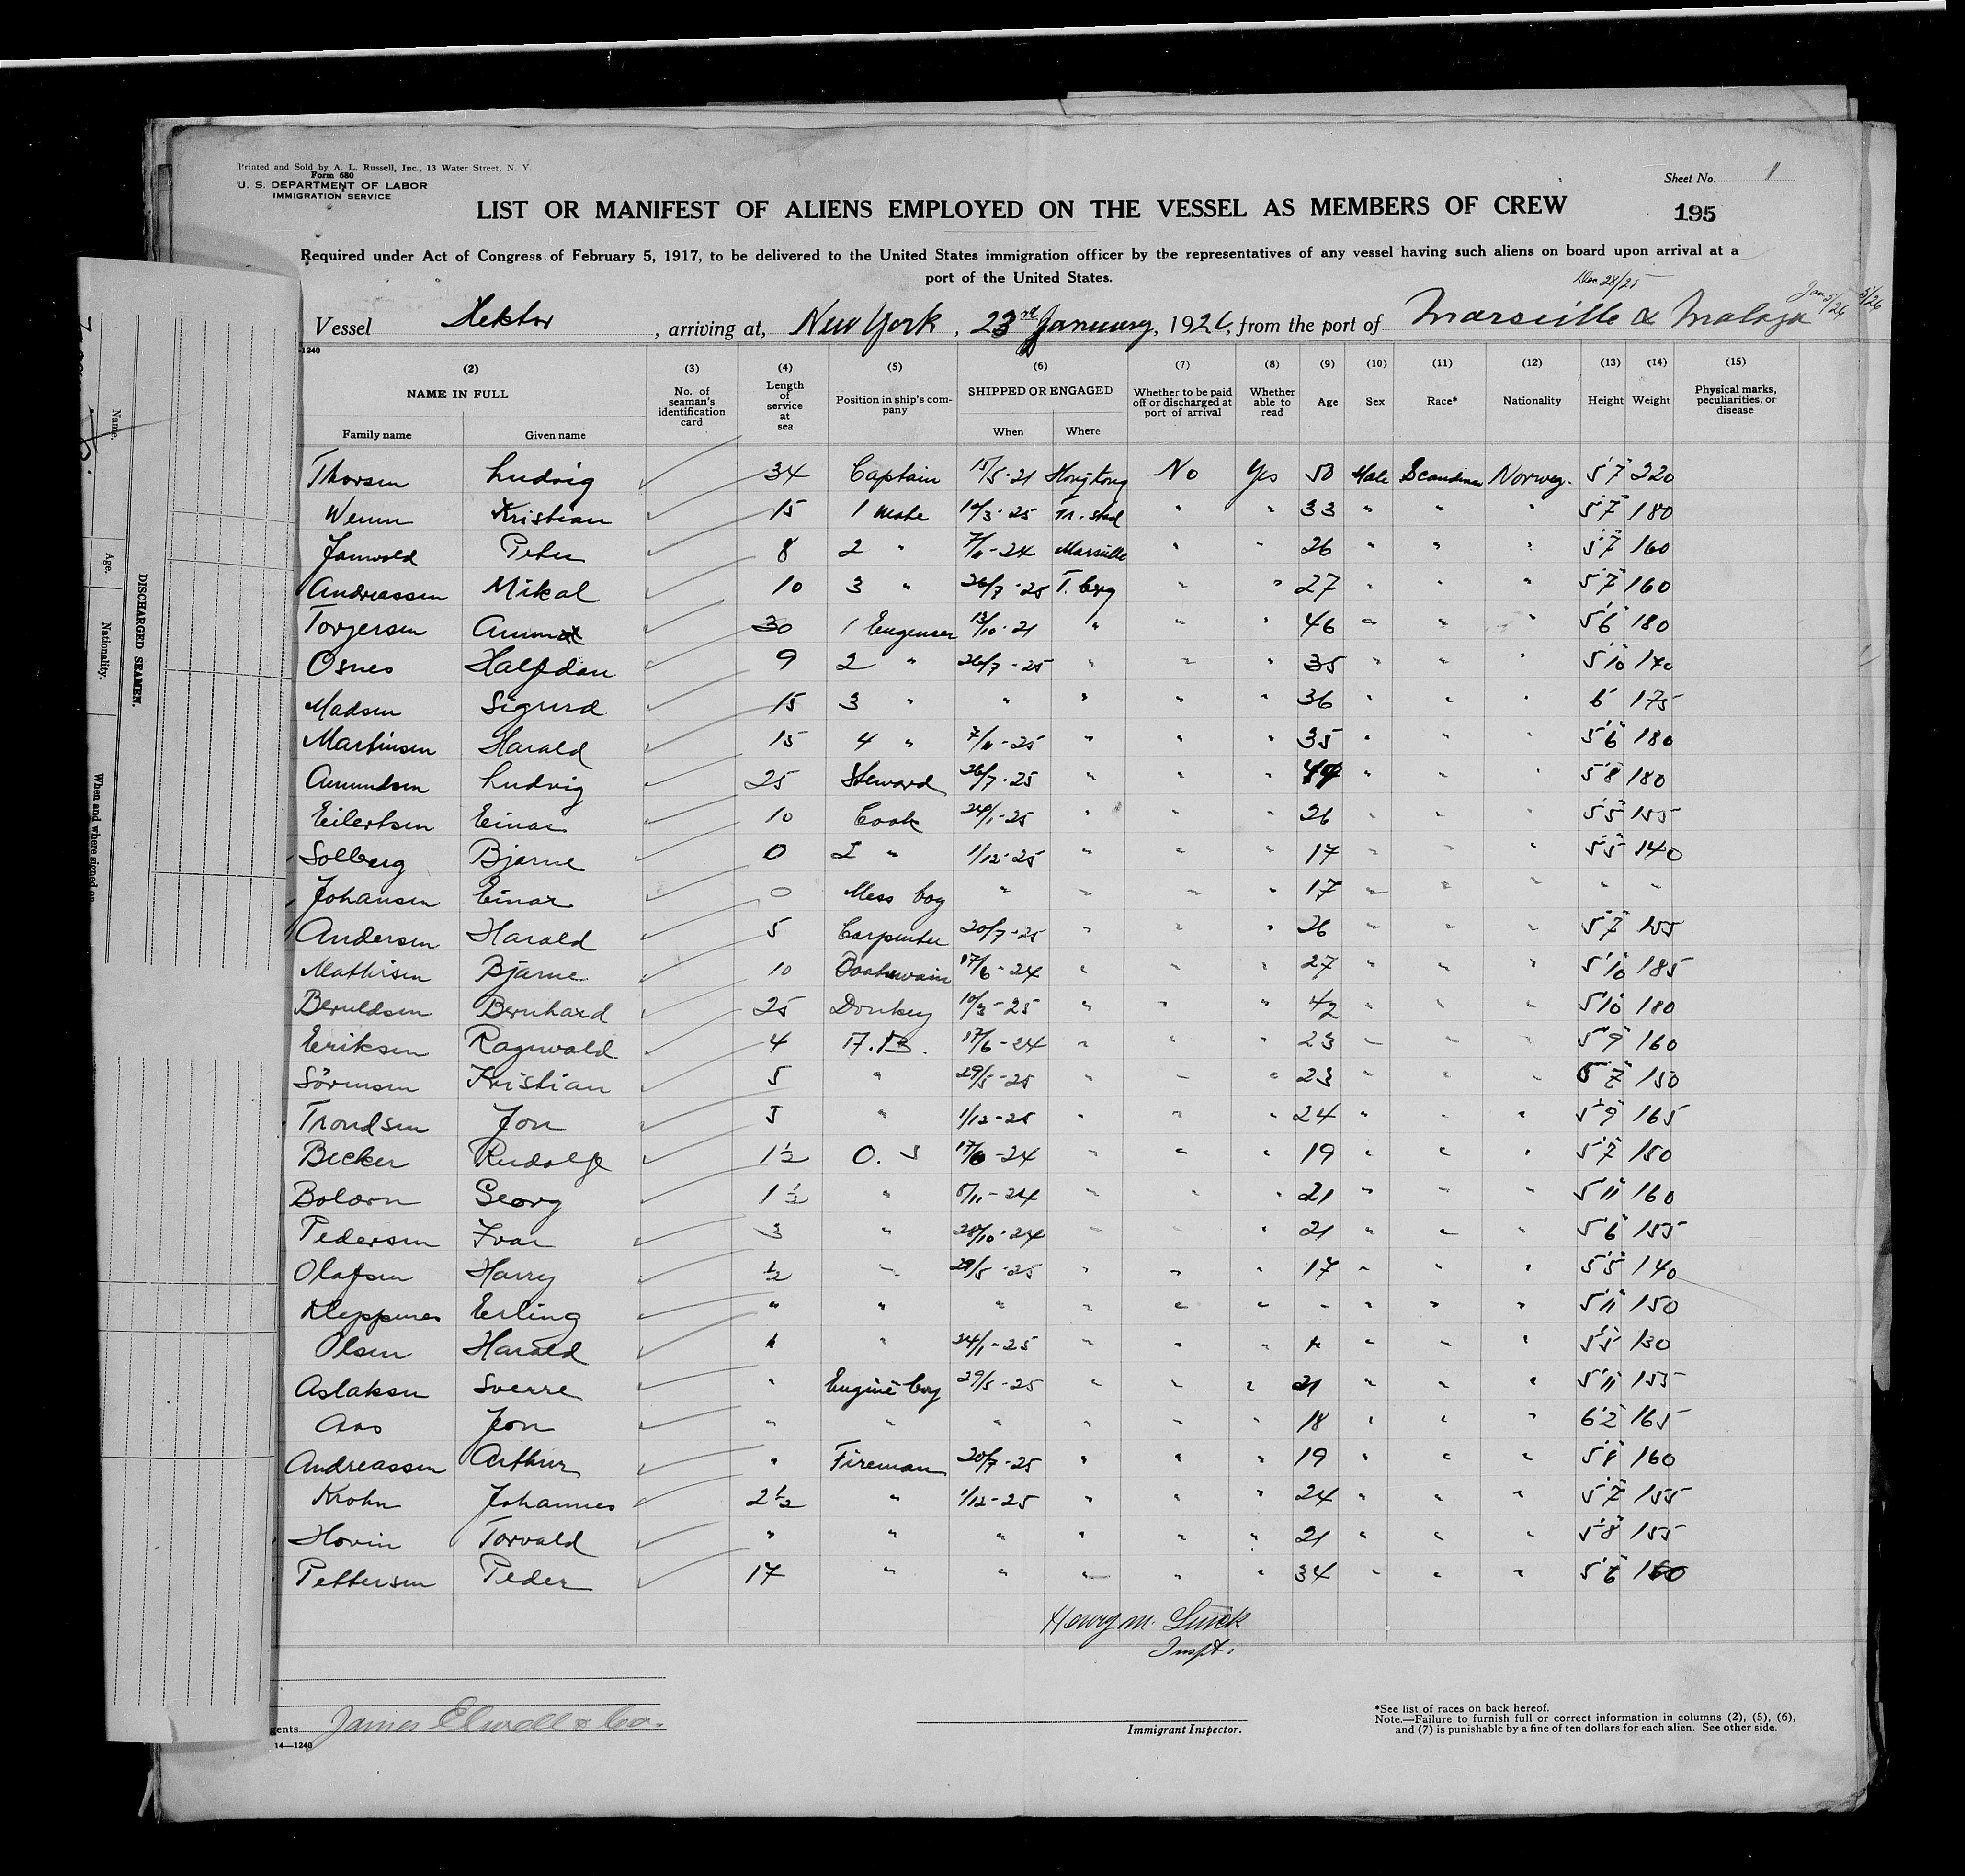 Printed and Sold by A. L. Russell, Inc., 13 Water Street, N. Y.
Form 680
U. S. DEPARTMENT OF LABOR
IMMIGRATION SERVICE
Sheet No. 1
LIST OR MANIFEST OF ALIENS EMPLOYED ON THE VESSEL AS MEMBERS OF CREW
195
Required under Act of Congress of February 5, 1917, to be delivered to the United States immigration officer by the representatives of any vessel having such aliens on board upon arrival at a
port of the United States.
Dec 28/25
Jan 5/26
5/26
Vessel Hektor, arriving at, New York, 23rd January, 1926, from the port of Marseille & Malaga
1240
(2) (3) (4) (5) (6) (7) (8) (9) (10) (11) (12) (13) (14) (15)
NAME IN FULL
Family name Given name
No. of seaman's identification card
Length of service at sea
Position in ship's company
SHIPPED OR ENGAGED
When Where
Whether to be paid off or discharged at port of arrival
Whether able to read
Age Sex Race* Nationality Height Weight
Physical marks, peculiarities, or disease
Thorsen Ludvig 34 Captain 15/5-21 Hongkong No Yes 50 Male Scandina Norweg. 5'7" 220
Wenn Kristian 15 1 Mate 10/3-25 Tr. sted " " 33 " " " 5'7" 180
Peter 8 2 " 7/11-24 Marseille " " 26 " " " 5'7" 160
Andreassen Mikal 10 3 " 26/7-25 T. berg " " 27 " " " 5'7" 160
Torgersen 30 1 Engeneer 13/10-21 " " " 46 " " " 5'6" 180
Osnes Halfdan 9 2 " 26/7-25 " " " 35 " " " 5'10 140
Madsen Sigurd 15 3 " " " " " 36 " " " 6' 175
Martinsen Harald 15 4 " 7/11-25 " " " 35 " " " 5'6" 180
Amundsen Ludvig 25 Steward 26/7-25 " " " " " " 5'8" 180
Eilertsen Einar 10 Cook 24/1-25 " " " 26 " " " 5'5" 155
Solberg Bjarne 0 2 " 1/12-25 " " " 17 " " " 5'5" 140
Johansen Einar 0 Mess boy " " " " 17 " " " " "
Andersen Harald 5 Carpenter 20/7-25 " " " 26 " " " 5'7" 155
Mathisen Bjarne 10 Boatswain 17/6-24 " " " 27 " " " 5'10 185
Beruldsen Bernhard 25 Donkey 10/3-25 " " " 42 " " " 5'10 180
Eriksen Ragnvald 4 A.B. 17/6-24 " " " 23 " " " 5'9" 160
Sörensen Kristian 5 " 29/5-25 " " " 23 " " " 5'7" 150
Trondsen Jon 5 " 1/12-25 " " " 24 " " " 5'9" 165
Becker Rudolf 1½ O. S 17/6-24 " " " 19 " " " 5'7" 150
Bolærn Georg 1½ " 8/11-24 " " " 21 " " " 5'11" 160
Pedersen Ivar 3 " 28/10-24 " " " 21 " " " 5'6" 155
Olafsen Harry ½ " 29/5-25 " " " 17 " " " 5'5" 140
Kleppenes Erling " " " " " " " " " " 5'11" 150
Olsen Harald " " 24/1-25 " " " " " " " 5'5" 130
Aslaksen Sverre " Engine boy 29/5-25 " " " 21 " " " 5'11" 155
Aas Jon " " " " " " 18 " " " 6'2" 165
Andreassen Arthur " Fireman 20/7-25 " " " 19 " " " 5'8" 160
Krohn Johannes 2½ " 1/12-25 " " " 24 " " " 5'7" 155
Hovin Torvald " " " " " " 21 " " " 5'8" 155
Pettersen Peder 17 " " " " " 34 " " " 5'6"
Inspt.
gents James Elwell & Co.
14—1240
Immigrant Inspector.
*See list of races on back hereof.
Note.—Failure to furnish full or correct information in columns (2), (5), (6),
and (7) is punishable by a fine of ten dollars for each alien. See other side.
DISCHARGED SEAMEN.
Name. Age. Nationality. When and where signed on